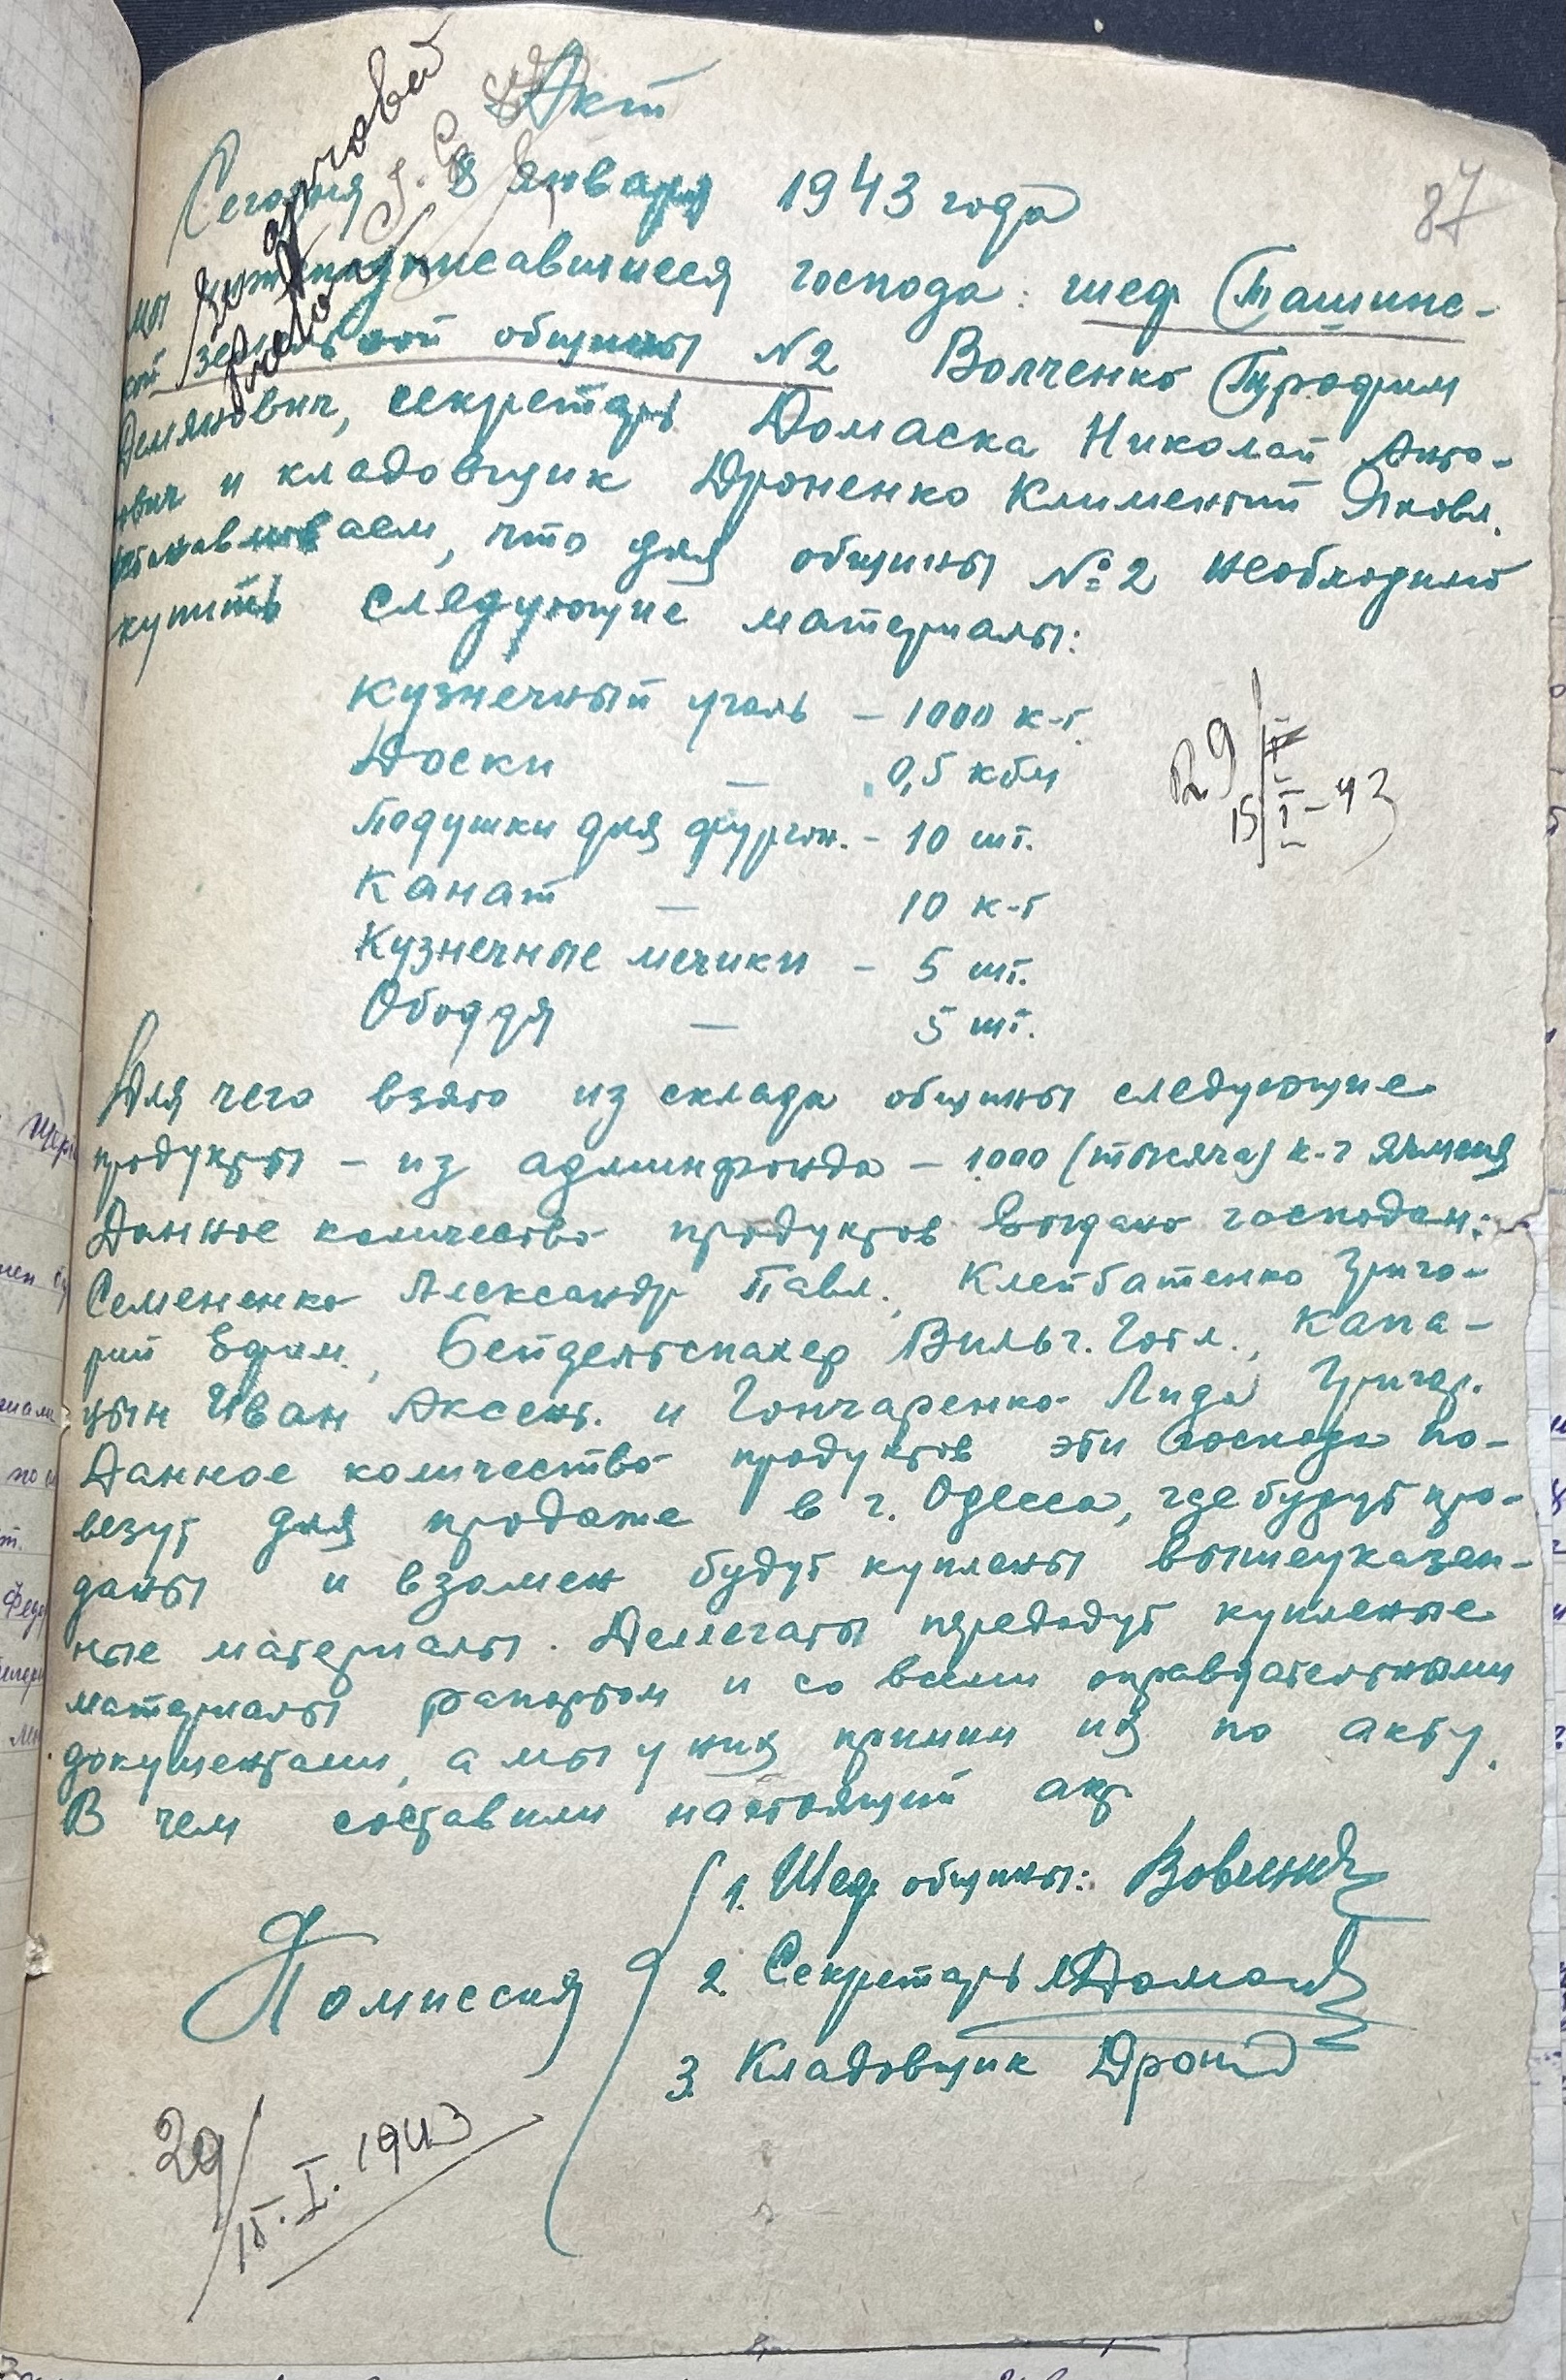 Акт
87
Сегодня 8 января 1943 года
мы нижеподписавшиеся господа: шеф Ташинс-
кой земельной общины N2 Волченко Трофим
Демянович, секретарь Домаска Николай Анто-
нович и кладовщик Дроненко Климентий Яковл.
устанавливаем, что для общины №2 необходимо
купить следующие материалы:
Кузнечный уголь – 1000 к-г.
Доски – 0,5 кбм
Подушки для фургон. – 10 шт.
Канат – 10 к-г
Кузнечные мечики – 5 шт.
Ободдя – 5 шт.
29
15 I – 43
Для чего взято из склада общины следующие
продукты – из админфонда – 1000 (тысяча) к-г ячменя
Данное количество продуктов выдано господам:
Семененко Александр Павл., Клейбатенко Григо-
рий Ефим., Бейдельспахер Вильг. Готл., Капа-
цын Иван Аксент. и Гончаренко Лида Григор.
Данное количество продуктов эти господа по-
везут для продаже в г. Одесса, где будут про-
даны и взамен будут куплены вышеуказан-
ные материалы. Делегаты передадут купленые
материалы рапортом и со всеми оправдательными
документами, а мы у них примим их по акту.
В чем составили настоящий акт.
Комиссия
1. Шеф общины: Вовченко
2. Секретарь Домаска
3. Кладовщик Дрон
29/15.I.1943